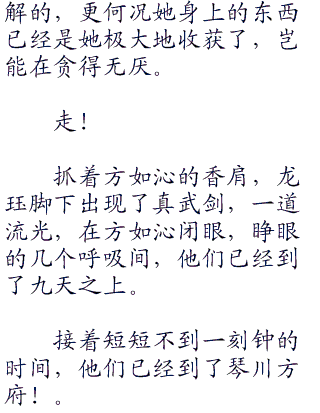 解的，更何况她身上的东西
已经是她极大地收获了，岂
能在贪得无厌。
走！
抓着方如沁的香肩，龙
珏脚下出现了真武剑，一道
流光，在方如沁闭眼，睁眼
的几个呼吸间，他们已经到
了九天之上。
接着短短不到一刻钟的
时间，他们已经到了琴川方
府！。